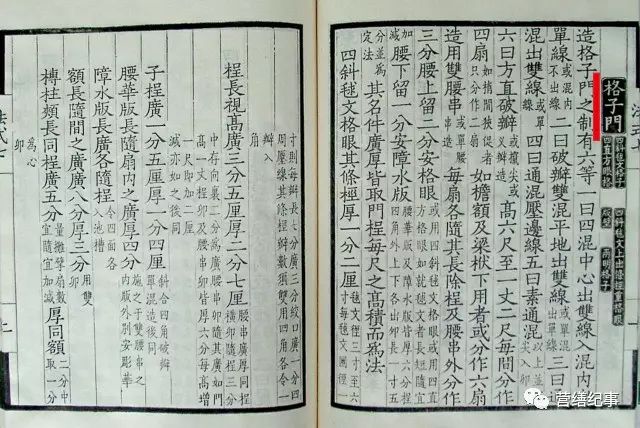 格子門 四斜毬文格子 四斜毬文上出條桱重格眼 四直方眼格 版壁 兩明格子
造格子門之制有六等一曰四混中心出雙線入混內出
單線或混內不出線二曰破瓣雙混平地出雙線或單混出單線三曰通
混出雙線或單線四曰通混壓邊線五曰素通混以上並攛尖入卯
六曰方直破瓣或攛尖或叉瓣造高六尺至一丈二尺每間分作
四扇如梢間狹促者只分作二扇如檐額及梁栿下用者或分作六扇
造用雙腰串或單腰串造每扇各隨其長除桯及腰串外分作
三分腰上留二分安格眼或用四斜毬文格眼或用四直方格眼如就毬文者長短隨宜加減
腰下留一分安障水版腰華版及障水版皆厚六分桯四角外上下各出卯長一寸五分並為定法
其名件廣厚皆取門桯每尺之高積而為法
四斜毬文格眼其條桱厚一分二厘毬文徑三寸至六寸每毬文圓徑一
寸則每瓣長七分廣三分絞口廣一分四周壓邊線其條桱瓣數須雙用四角各令一瓣入角
桯長視高廣三分五厘厚二分七厘腰串廣厚同桯橫卯隨桯三分中存向裏二分為廣腰串卯隨其廣如門高一丈桯卯及腰串卯皆厚六分每高增一尺即加二厘減亦如之後同
子桯廣一分五厘厚一分四厘斜合四角破瓣單混造後同
腰華版長隨扇內之廣厚四分施之于雙腰串之內版外別安彫華
障水版長廣各隨桯令四面各入池槽
額長隨間之廣廣八分厚三分用雙卯
槫柱頰長同桯廣五分量攤擘扇數隨宜加減厚同額二分中取一分為心卯
法式七
营缮纪事